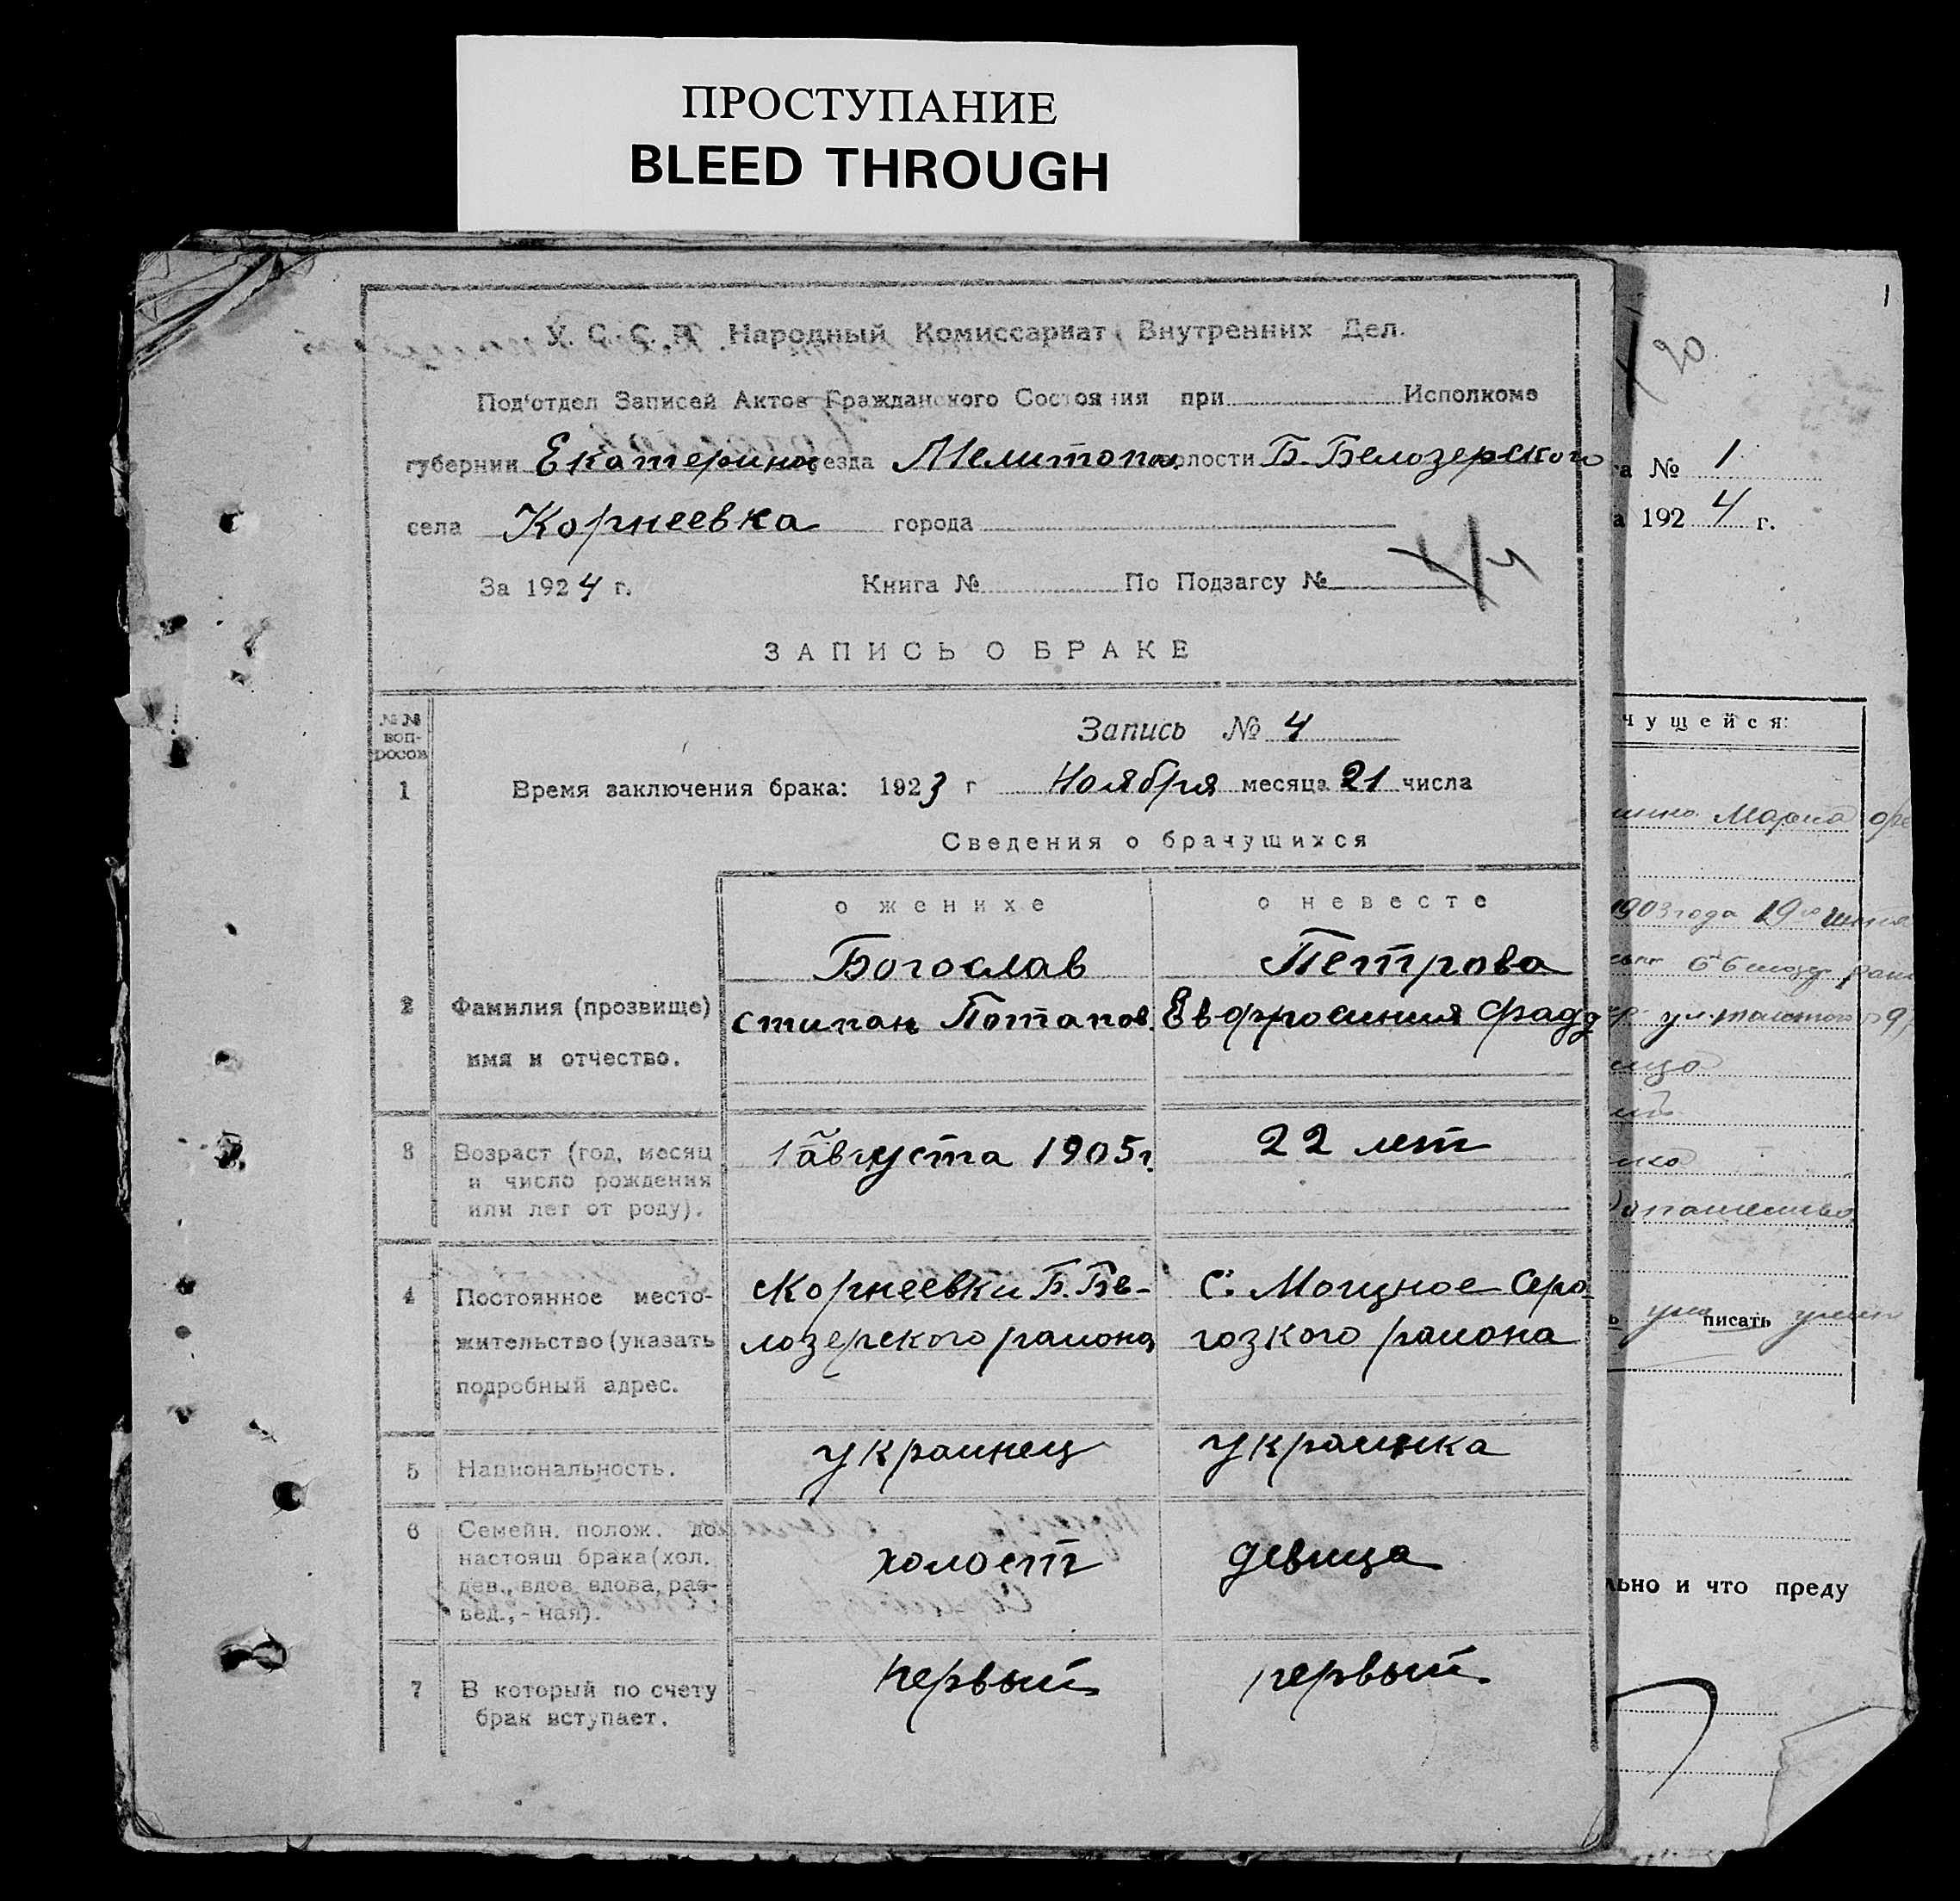 ПРОСТУПАНИЕ
BLEED THROUGH
У. С. С. Р. Народный Комиссариат Внутренних Дел.
Под'отдел Записей Актов Гражданского Состояния при Исполкоме
губернии Екатерино уезда Мелитопол волости Б. Белозерского
села Корнеевка города
За 1924 г. Книга № По Подзагсу №
ЗАПИСЬ О БРАКЕ
№№ вопросов
Запись № 4
1 Время заключения брака: 1923 г Ноября месяца 21 числа
Сведения о брачущихся
о женихе о невесте
Богослав Петрова
2 Фамилия (прозвище) стипан Потапов. Евфросиния Фадд
имя и отчество.
3 Возраст (год, месяц 1 августа 1905 г. 22 лет
и число рождения
или лет от роду).
4 Постоянное место- Корнеевки Б. Бе- С. Мощное Серо
жительство (указать лозерского района гозкого района
подробный адрес.
5 Национальность. украинец украинка
6 Семейн. полож. до
настоящ брака (хол. холост девица
дев., вдов вдова, раз-
вед., - ная).
7 В который по счету первый первый
брак вступает.
1
20
га № 1
а 1924 г.
чущейся:
Мария
1903 года 19го июня
писать
льно и что преду